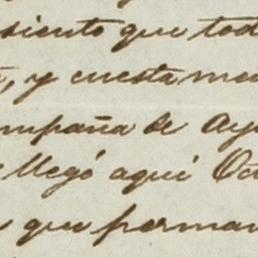 siento que tod
, y cuesta me
mpaña de Ay
llegó aquí Oc
que perman